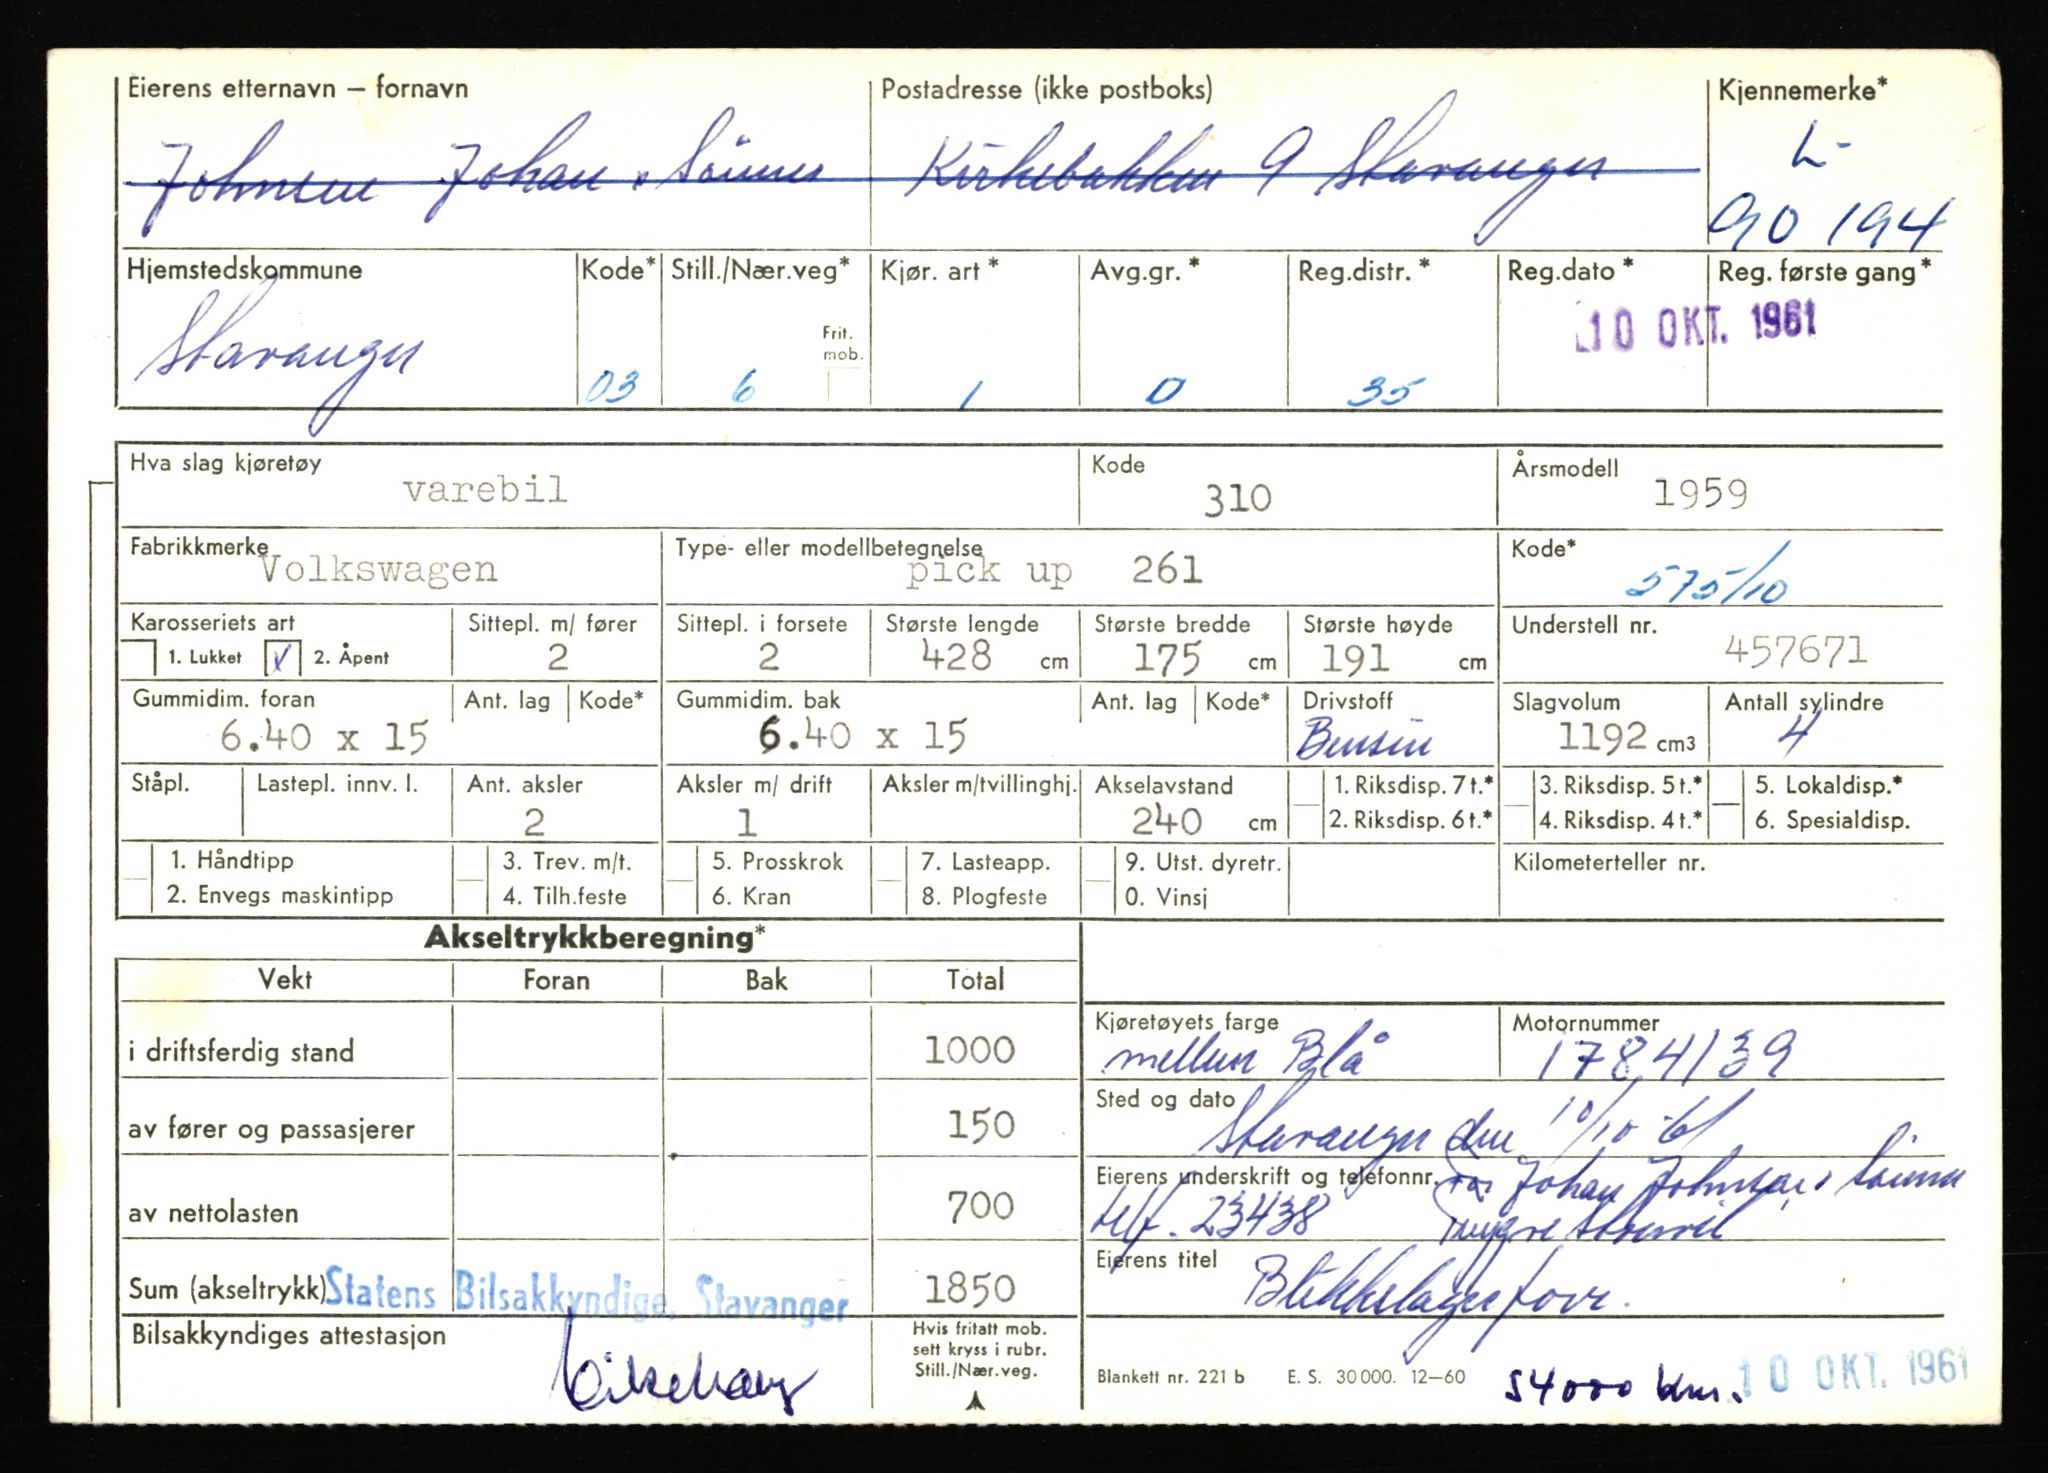 Eierens etternavn – fornavn Postadresse (ikke postboks) Kjennemerke*
Johnsen Johan Sönner Kirkebakken 9 Stavanger L-
90 194
Hjemstedskommune Kode* Still./Nær.veg* Kjør. art * Avg.gr. * Reg.distr. * Reg.dato * Reg. første gang*
Stavanger Frit. mob. 10 OKT. 1961
03 6 1 0 35
Hva slag kjøretøy Kode Årsmodell
varebil 310 1959
Fabrikkmerke Type- eller modellbetegnelse Kode*
Volkswagen pick up 261 575/10
Karosseriets art Sittepl. m/ fører Sittepl. i forsete Største lengde Største bredde Største høyde Understell nr.
1. Lukket V 2. Åpent 2 2 428 cm 175 cm 191 cm 457671
Gummidim. foran Ant. lag Kode* Gummidim. bak Ant. lag Kode* Drivstoff Slagvolum Antall sylindre
6.40 x 15 6.40 x 15 Bensin 1192 cm3 4
Ståpl. Lastepl. innv. l. Ant. aksler Aksler m/ drift Aksler m/tvillinghj. Akselavstand 1. Riksdisp. 7 t.* 3. Riksdisp. 5 t.* 5. Lokaldisp.*
2 1 240 cm 2. Riksdisp. 6 t.* 4. Riksdisp. 4 t.* 6. Spesialdisp.
1. Håndtipp 3. Trev. m/t. 5. Prosskrok 7. Lasteapp. 9. Utst. dyretr. Kilometerteller nr.
2. Envegs maskintipp 4. Tilh.feste 6. Kran 8. Plogfeste 0. Vinsj
Akseltrykkberegning*
Vekt Foran Bak Total
i driftsferdig stand 1000
av fører og passasjerer 150
av nettolasten 700
Sum (akseltrykk) Statens Bilsakkyndige, Stavanger 1850
Bilsakkyndiges attestasjon
Hvis fritatt mob.
sett kryss i rubr.
Still./Nær.veg.
Kjøretøyets farge Motornummer
mellom Blå 1784139
Sted og dato
Stavanger den 10/10-61
Eierens underskrift og telefonnr. Johan Johnsen Sönner
telf. 23438
Eierens titel
Blikkslagerforr.
Blankett nr. 221 b E. S. 30 000. 12–60 54000 km. 10 OKT. 1961